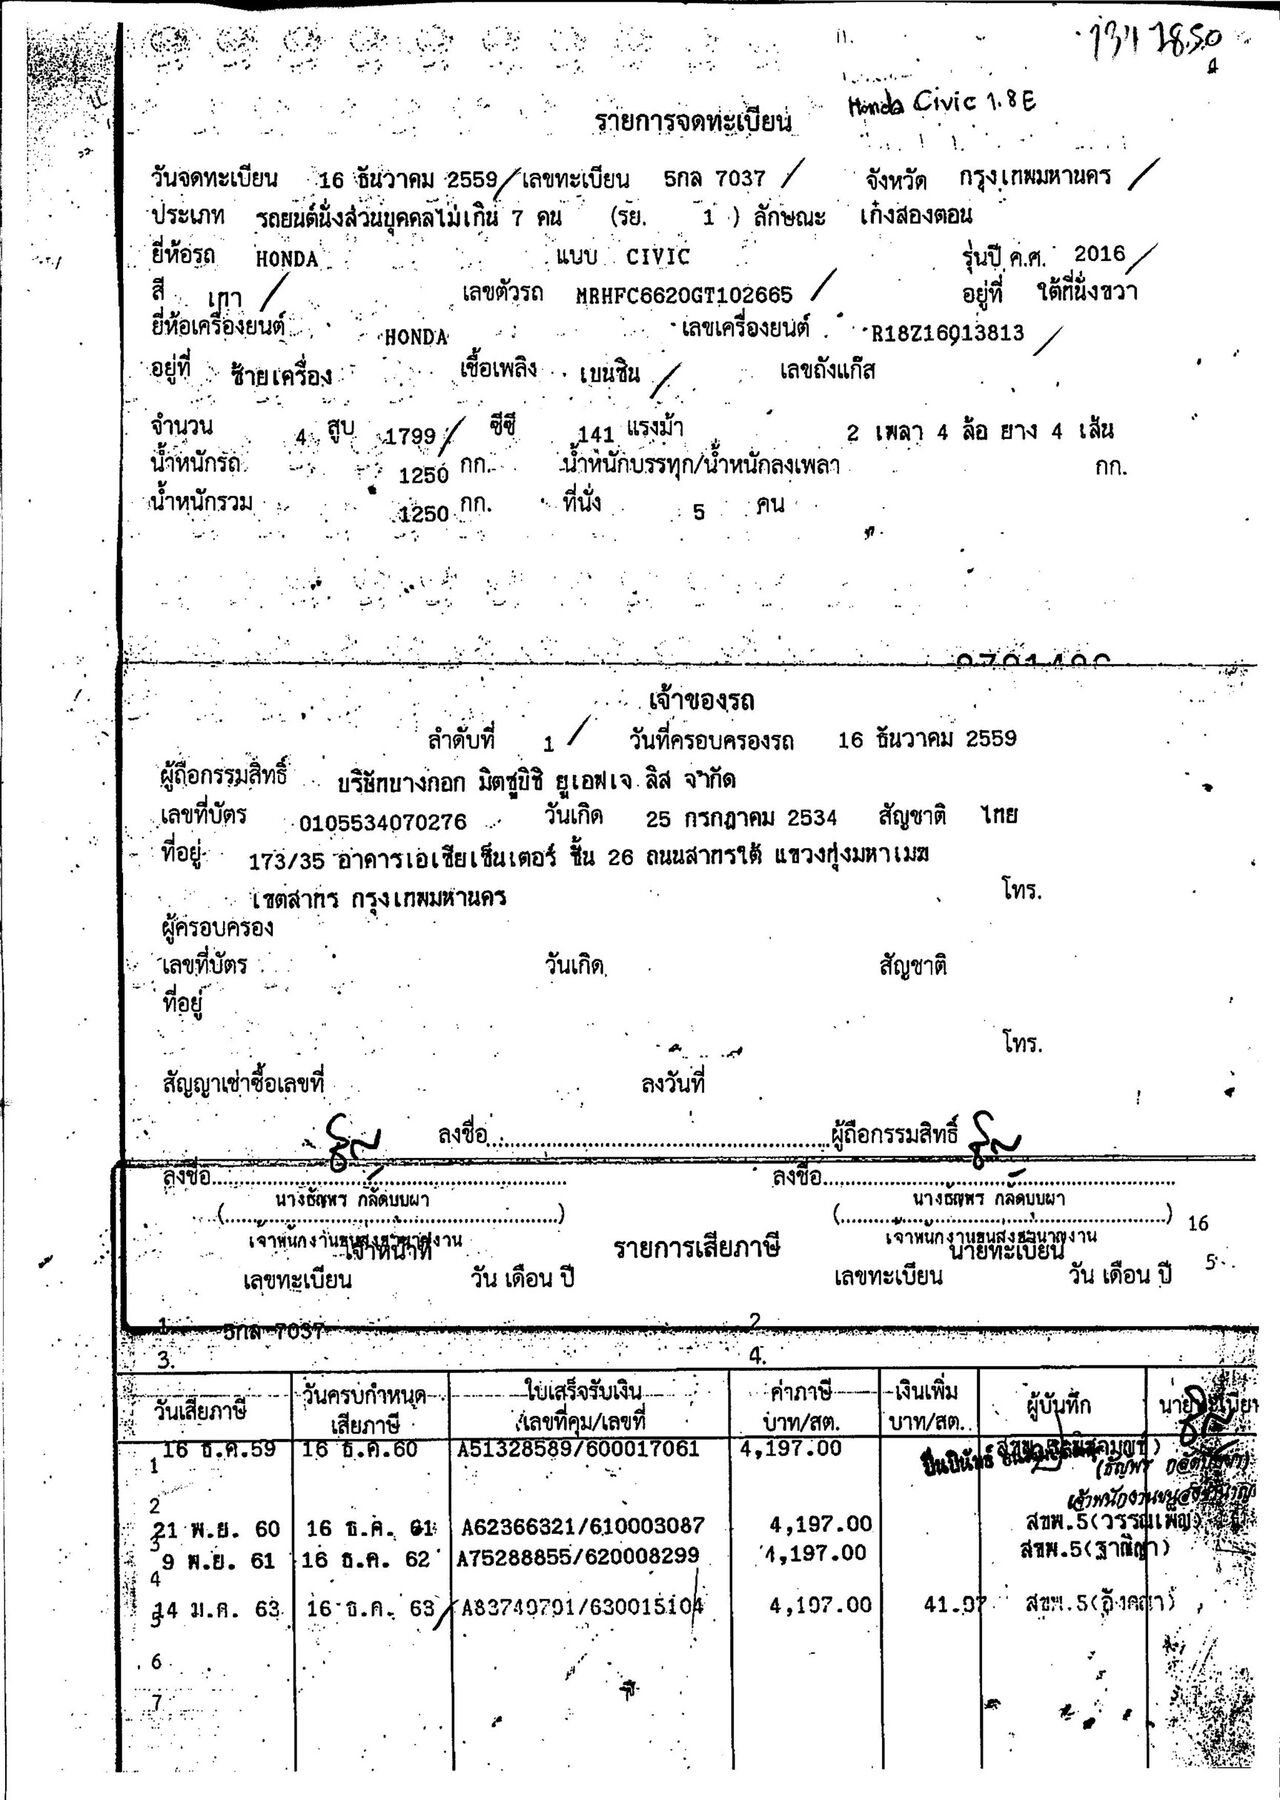 Honda Civic 1.8E
รายการจดทะเบียน
วันจดทะเบียน 16 ธันวาคม 2559 เลขทะเบียน 5กล 7037 จังหวัด กรุงเทพมหานคร
ประเภท รถยนต์นั่งส่วนบุคคลไม่เกิน 7 คน (รย. 1 ) ลักษณะ เก๋งสองตอน
ยี่ห้อรถ HONDA แบบ CIVIC รุ่นปี ค.ศ. 2016
สี เทา เลขตัวรถ MRHFC6620GT102665 อยู่ที่ ใต้ที่นั่งขวา
ยี่ห้อเครื่องยนต์ HONDA เลขเครื่องยนต์ R18Z16013813
อยู่ที่ ซ้ายเครื่อง เชื้อเพลิง เบนซิน เลขถังแก๊ส
จำนวน 4 สูบ 1799 ซีซี 141 แรงม้า 2 เพลา 4 ล้อ ยาง 4 เส้น
น้ำหนักรถ 1250 กก. น้ำหนักบรรทุก/น้ำหนักลงเพลา กก.
น้ำหนักรวม 1250 กก. ที่นั่ง 5 คน
เจ้าของรถ
ลำดับที่ 1 วันที่ครอบครองรถ 16 ธันวาคม 2559
ผู้ถือกรรมสิทธิ์ บริษัทบางกอก มิตซูบิชิ ยูเอฟเจ ลิส จำกัด
เลขที่บัตร 0105534070276 วันเกิด 25 กรกฎาคม 2534 สัญชาติ ไทย
ที่อยู่ 173/35 อาคารเอเซียเซ็นเตอร์ ชั้น 26 ถนนสาทรใต้ แขวงทุ่งมหาเมฆ
เขตสาทร กรุงเทพมหานคร โทร.
ผู้ครอบครอง
เลขที่บัตร วันเกิด สัญชาติ
ที่อยู่
โทร.
สัญญาเช่าซื้อเลขที่ ลงวันที่
ลงชื่อ ผู้ถือกรรมสิทธิ์
ลงชื่อ ลงชื่อ
นางธัญพร กลัดบุบผา นางธัญพร กลัดบุบผา
(....) (....) 16
เจ้าพนักงานขนส่งชำนาญงาน เจ้าพนักงานขนส่งชำนาญงาน
เจ้าหน้าที่ รายการเสียภาษี นายทะเบียน
เลขทะเบียน วัน เดือน ปี เลขทะเบียน วัน เดือน ปี 5
1. 5กล 7037 2
3. 4.
วันเสียภาษี วันครบกำหนดเสียภาษี ใบเสร็จรับเงิน เลขที่คุม/เลขที่ ค่าภาษี บาท/สต. เงินเพิ่ม บาท/สต. ผู้บันทึก นายทะเบียน
1 16 ธ.ค.59 16 ธ.ค.60 A51328589/600017061 4,197.00
(ธัญพร กลัดบุบผา)
เจ้าพนักงานขนส่งชำนาญ
2
21 พ.ย. 60 16 ธ.ค. 61 A62366321/610003087 4,197.00 สขพ.5(วรรณเพ็ญ)
3
9 พ.ย. 61 16 ธ.ค. 62 A75288855/620008299 4,197.00 สขพ.5(ฐาณิญา)
4
14 ม.ค. 63 16 ธ.ค. 63 A83749791/630015104 4,197.00 41.97 สขพ.5(อังคณา)
5
6
7